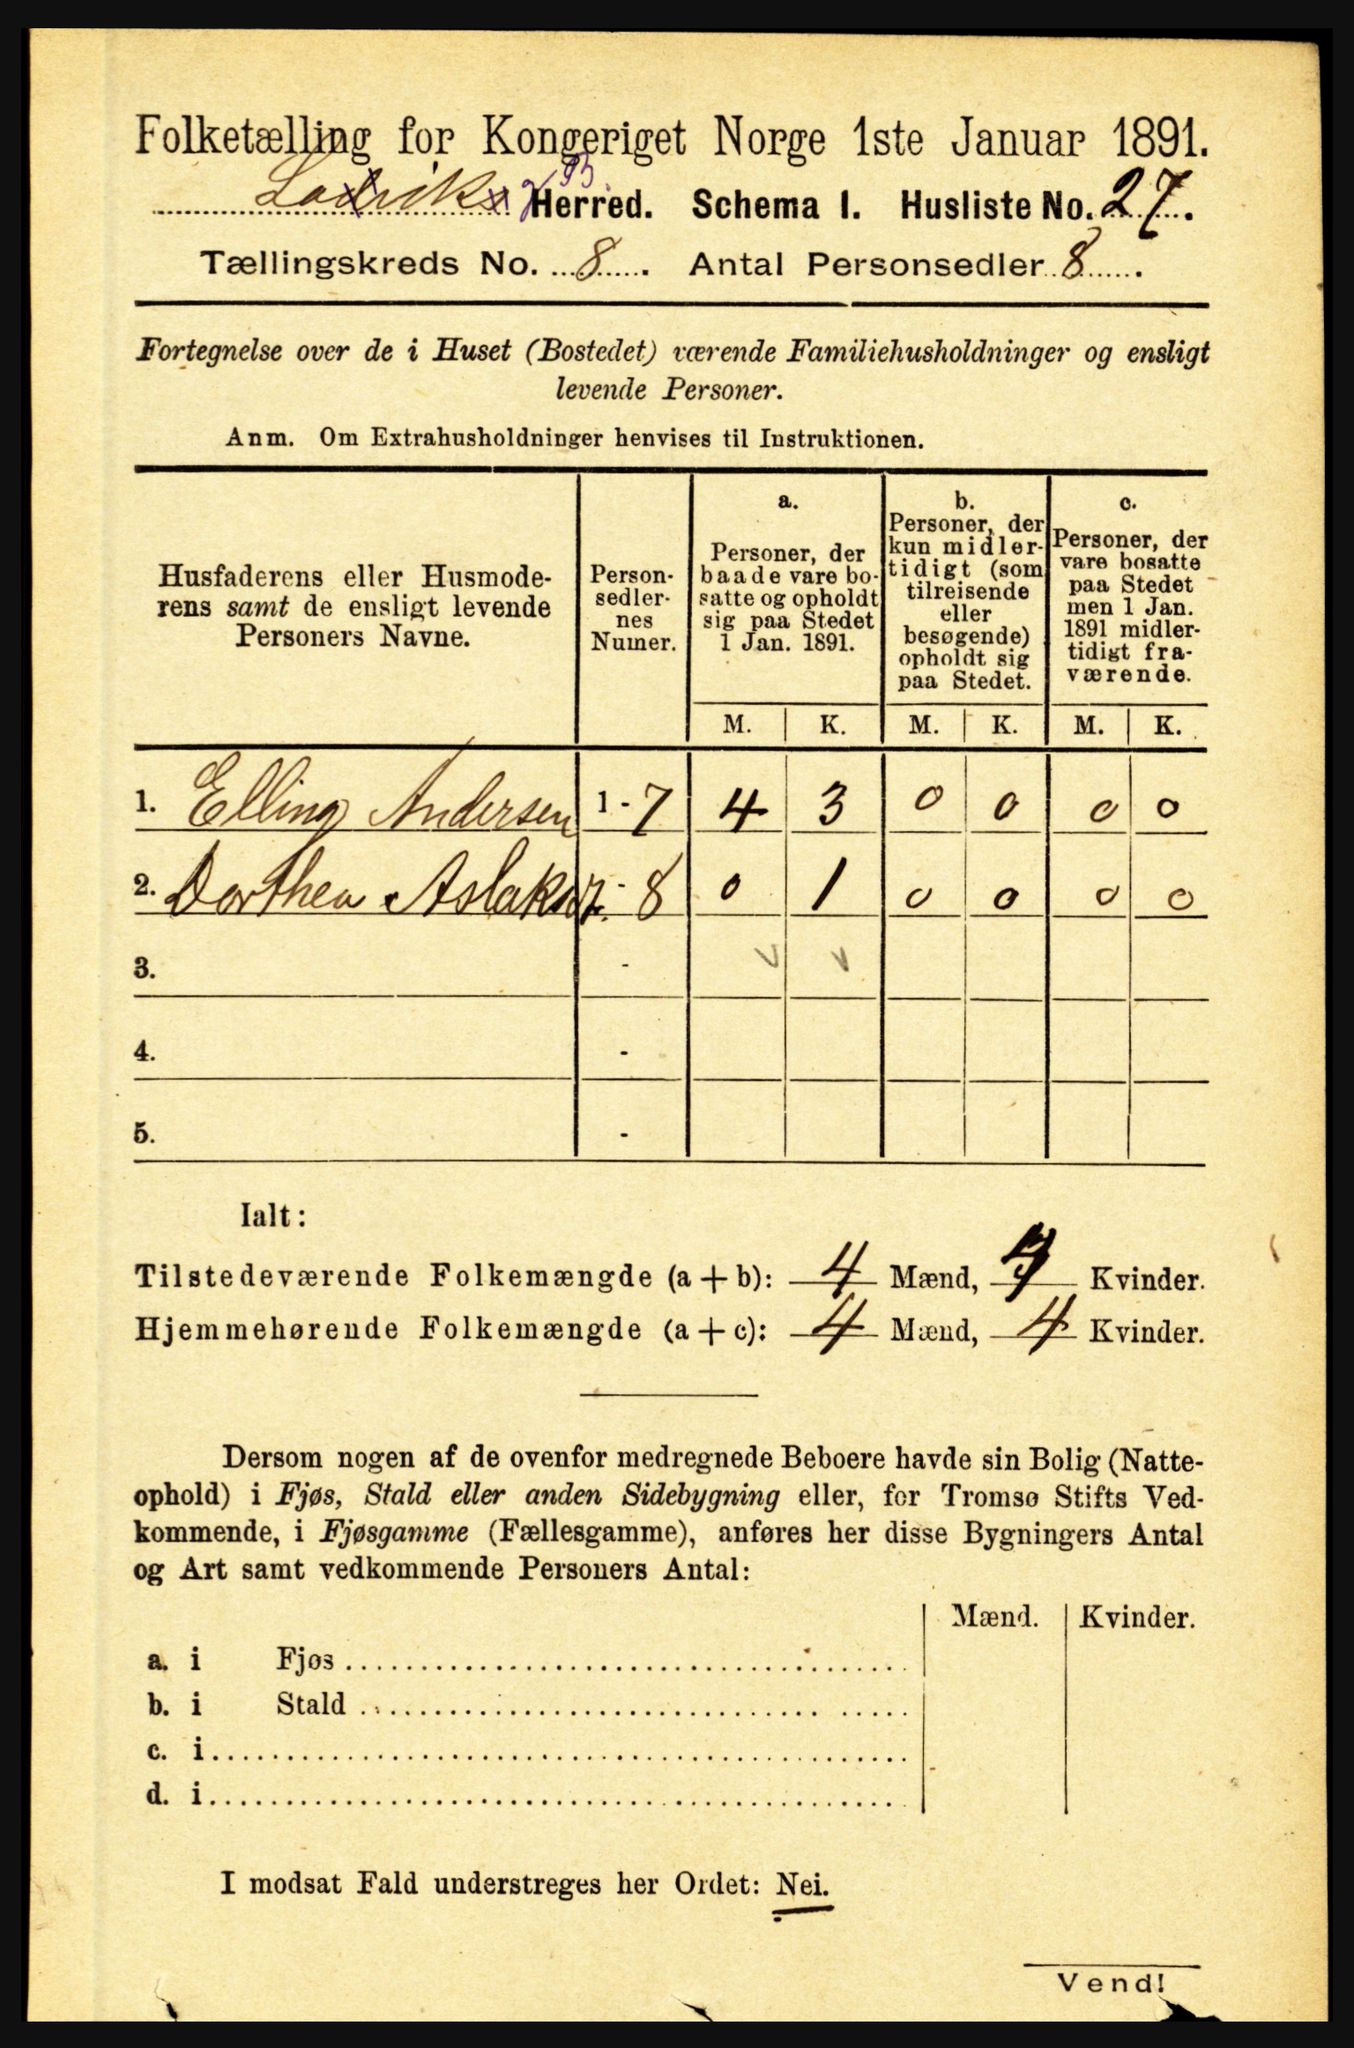 Folketælling for Kongeriget Norge 1ste Januar 1891.
Herred. Schema I. Husliste No. 27.
Tællingskreds No. 8. Antal Personsedler 8.
Fortegnelse over de i Huset (Bostedet) værende Familiehusholdninger og ensligt
levende Personer.
Anm. Om Extrahusholdninger henvises til Instruktionen.
Husfaderens eller Husmode-
rens samt de ensligt levende
Personers Navne.
Person-
sedler-
nes
Numer.
a.
Personer, der
baade vare bo-
satte og opholdt
sig paa Stedet
1 Jan. 1891.
b.
Personer, der
kun midler-
tidigt (som
tilreisende
eller
besøgende)
opholdt sig
paa Stedet.
c.
Personer, der
vare bosatte
paa Stedet
men 1 Jan.
1891 midler-
tidigt fra-
værende.
M. K. M. K. M. K.
1. Elling Andersen 1 - 7 4 3 0 0 0 0
2. Dorthea - 8 0 1 0 0 0 0
3. -
4. -
5. -
Ialt:
Tilstedeværende Folkemængde (a + b): 4 Mænd, 4 Kvinder.
Hjemmehørende Folkemængde (a + c): 4 Mænd, 4 Kvinder.
Dersom nogen af de ovenfor medregnede Beboere havde sin Bolig (Natte-
ophold) i Fjøs, Stald eller anden Sidebygning eller, for Tromsø Stifts Ved-
kommende, i Fjøsgamme (Fællesgamme), anføres her disse Bygningers Antal
og Art samt vedkommende Personers Antal:
Mænd. Kvinder.
a. i Fjøs
b. i Stald
c. i
d. i
I modsat Fald understreges her Ordet: Nei.
Vend!